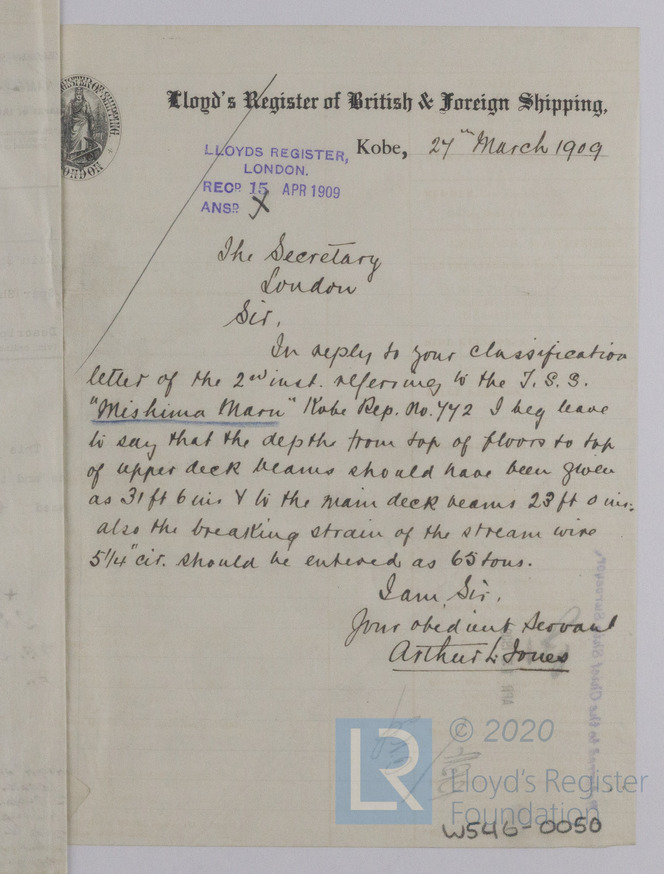 Lloyd's Register of British & Foreign Shipping,
Kobe, 27th March 1909
LLOYDS REGISTER,
LONDON.
RECD 15 APR 1909
ANSD X
The Secretary
London
Sir,
In reply to your classification
letter of the 2nd inst. referring to the T.S.S.
"Mishima Maru" Kobe Rep. No. 772 I beg leave
to say that the depths from top of floors to top
of upper deck beams should have been given
as 31 ft 6 ins & to the main deck beams 23 ft 0 ins:
also the breaking strain of the stream wire
5 1/4" cir. should be entered as 65 tons.
I am, Sir,
Your obedient Servant
Arthur L. Jones
© 2020
LR
Lloyd's Register
Foundation
W546-0050